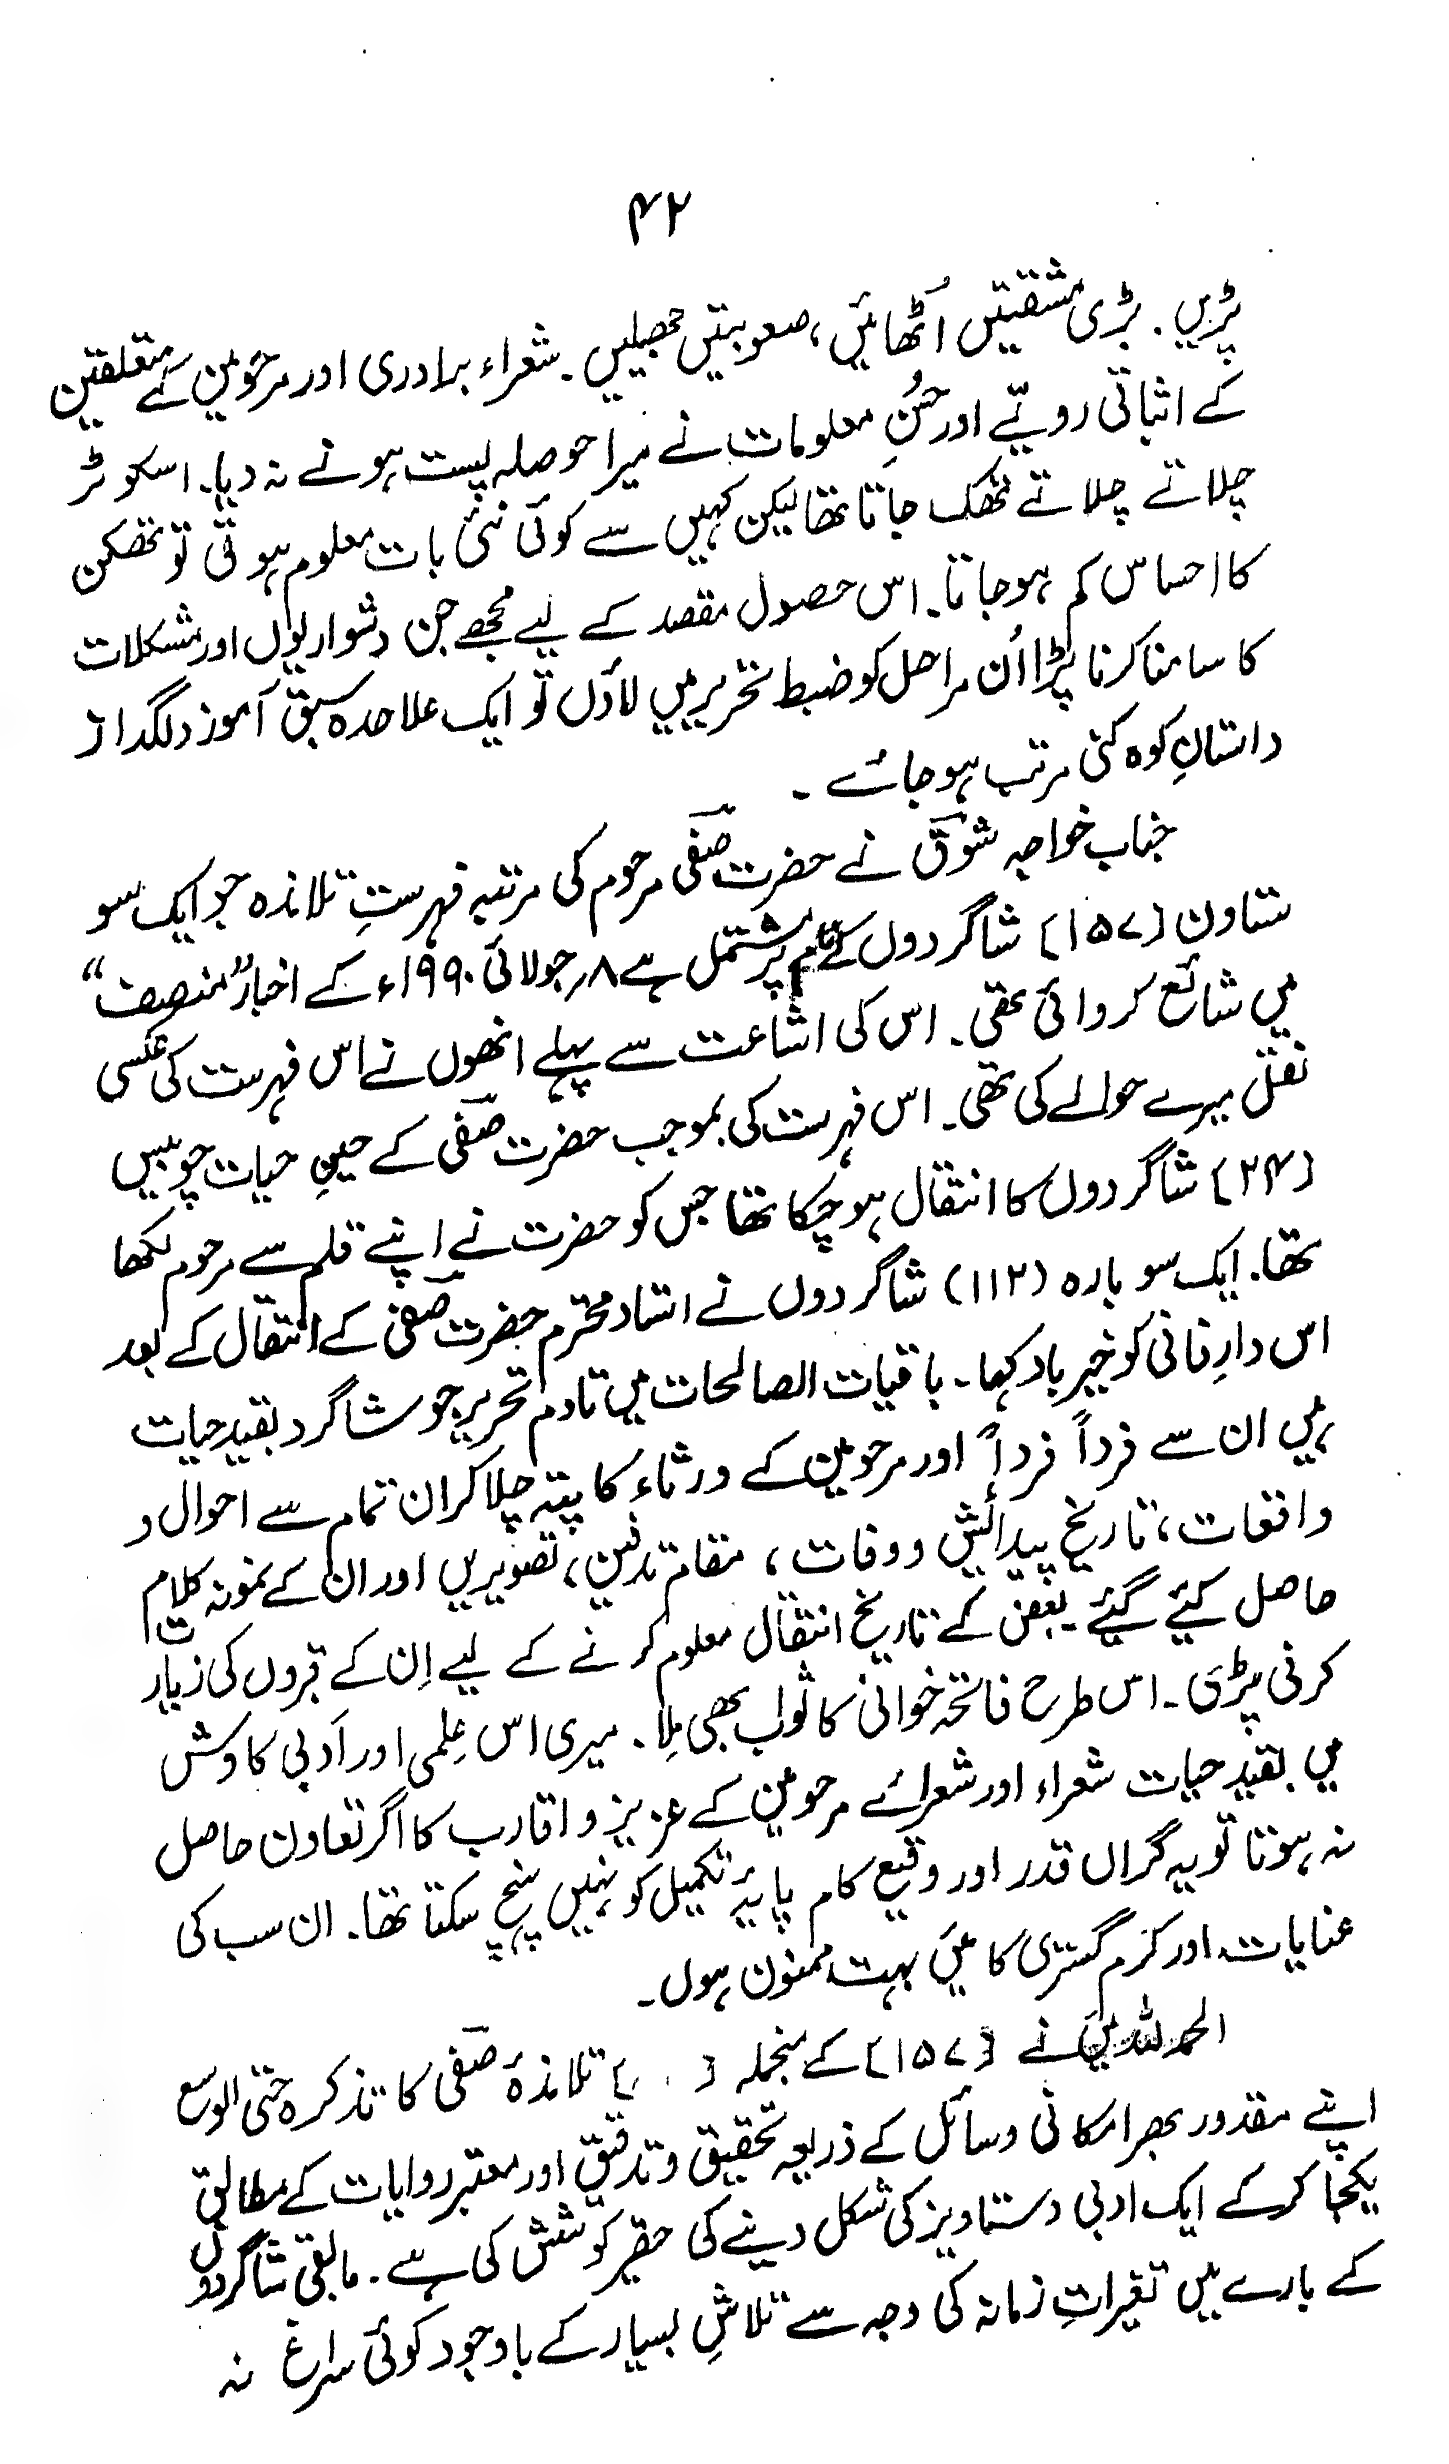 ۴۲
پڑیں ۔ بڑی مشقتیں اُٹھائیں ، صعوبتیں جھیلیں ۔ شعراء برادری اور مرحومین کے متعلقین
کے اثباتی رویّے اور حُسنِ معلومات نے میرا حوصلہ پست ہونے نہ دیا۔ اسکوٹر
چلاتے چلاتے تھک جاتا تھا لیکن کہیں سے کوئی نئی بات معلوم ہوتی تو تھکن
کا احساس کم ہوجاتا۔ اس حصول مقصد کے لیے مجھے جن دشواریوں اور مشکلات
کا سامنا کرنا پڑا اُن مراحل کو ضبط تحریر میں لاؤں تو ایک علاحدہ سبق آموز دلگداز
داستانِ کوہ کنی مرتب ہوجائے ۔
جناب خواجہ شوقؔ نے حضرت صفیؔ مرحوم کی مرتبہ فہرستِ تلامذہ جو ایک سو
ستاون [۱۵۷] شاگردوں کے نام پر مشتمل ہے ۸؍ جولائی ۱۹۹۰ء کے اخبار ”منصف“
میں شائع کروائی تھی۔ اس کی اشاعت سے پہلے انھوں نے اس فہرست کی عکسی
نقل میرے حوالے کی تھی۔ اس فہرست کی بموجب حضرت صفیؔ کے حینِ حیات چوبیس
[۲۴] شاگردوں کا انتقال ہوچکا تھا جس کو حضرت نے اپنے قلم سے مرحوم لکھا
تھا۔ ایک سو بارہ (۱۱۲) شاگردوں نے استاد محترم حضرت صفیؔ کے انتقال کے بعد
اس دارِ فانی کو خیرباد کہا۔ باقیات الصالحات میں تادم تحریر جو شاگرد بقیدِ حیات
ہیں ان سے فرداً فرداً اور مرحومین کے ورثاء کا پتہ چلا کر ان تمام سے احوال و
واقعات ، تاریخ پیدائش و وفات ، مقام تدفین ، تصویریں اور ان کے نمونہ کلام
حاصل کیئے گیئے ۔ بعض کے تاریخ انتقال معلوم کرنے کے لیے اِن کے قبروں کی زیارت
کرنی پڑی ۔ اس طرح فاتحہ خوانی کا ثواب بھی مِلا ۔ میری اس عِلمی اور اَدبی کاوش
میں بقیدِ حیات شعراء اور شعرائے مرحومین کے عزیز و اقارب کا اگر تعاون حاصل
نہ ہوتا تو یہ گراں قدر اور وقیع کام پایۂ تکمیل کو نہیں پہنچ سکتا تھا۔ ان سب کی
عنایات اور کرم گستری کا میں بہت ممنون ہوں ۔
الحمدللہ میں نے [۱۵۷] کے منجملہ [ ] تلامذۂ صفیؔ کا تذکرہ حتی الوسع
اپنے مقدور بھر امکانی وسائل کے ذریعہ تحقیق و تدقیق اور معتبر روایات کے مطابق
یکجا کرکے ایک ادبی دستاویز کی شکل دینے کی حقیر کوشش کی ہے ۔ مابقی شاگردوں
کے بارے میں تغیراتِ زمانہ کی وجہ سے تلاشِ بسیار کے باوجود کوئی سراغ نہ